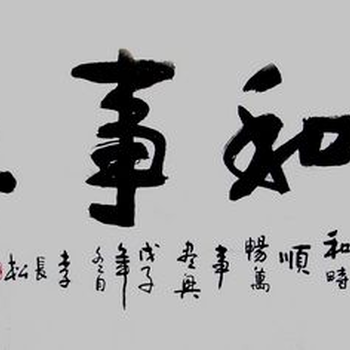 和事
和時
順
暢萬
事
興
戊子
年
冬月
李
長
松